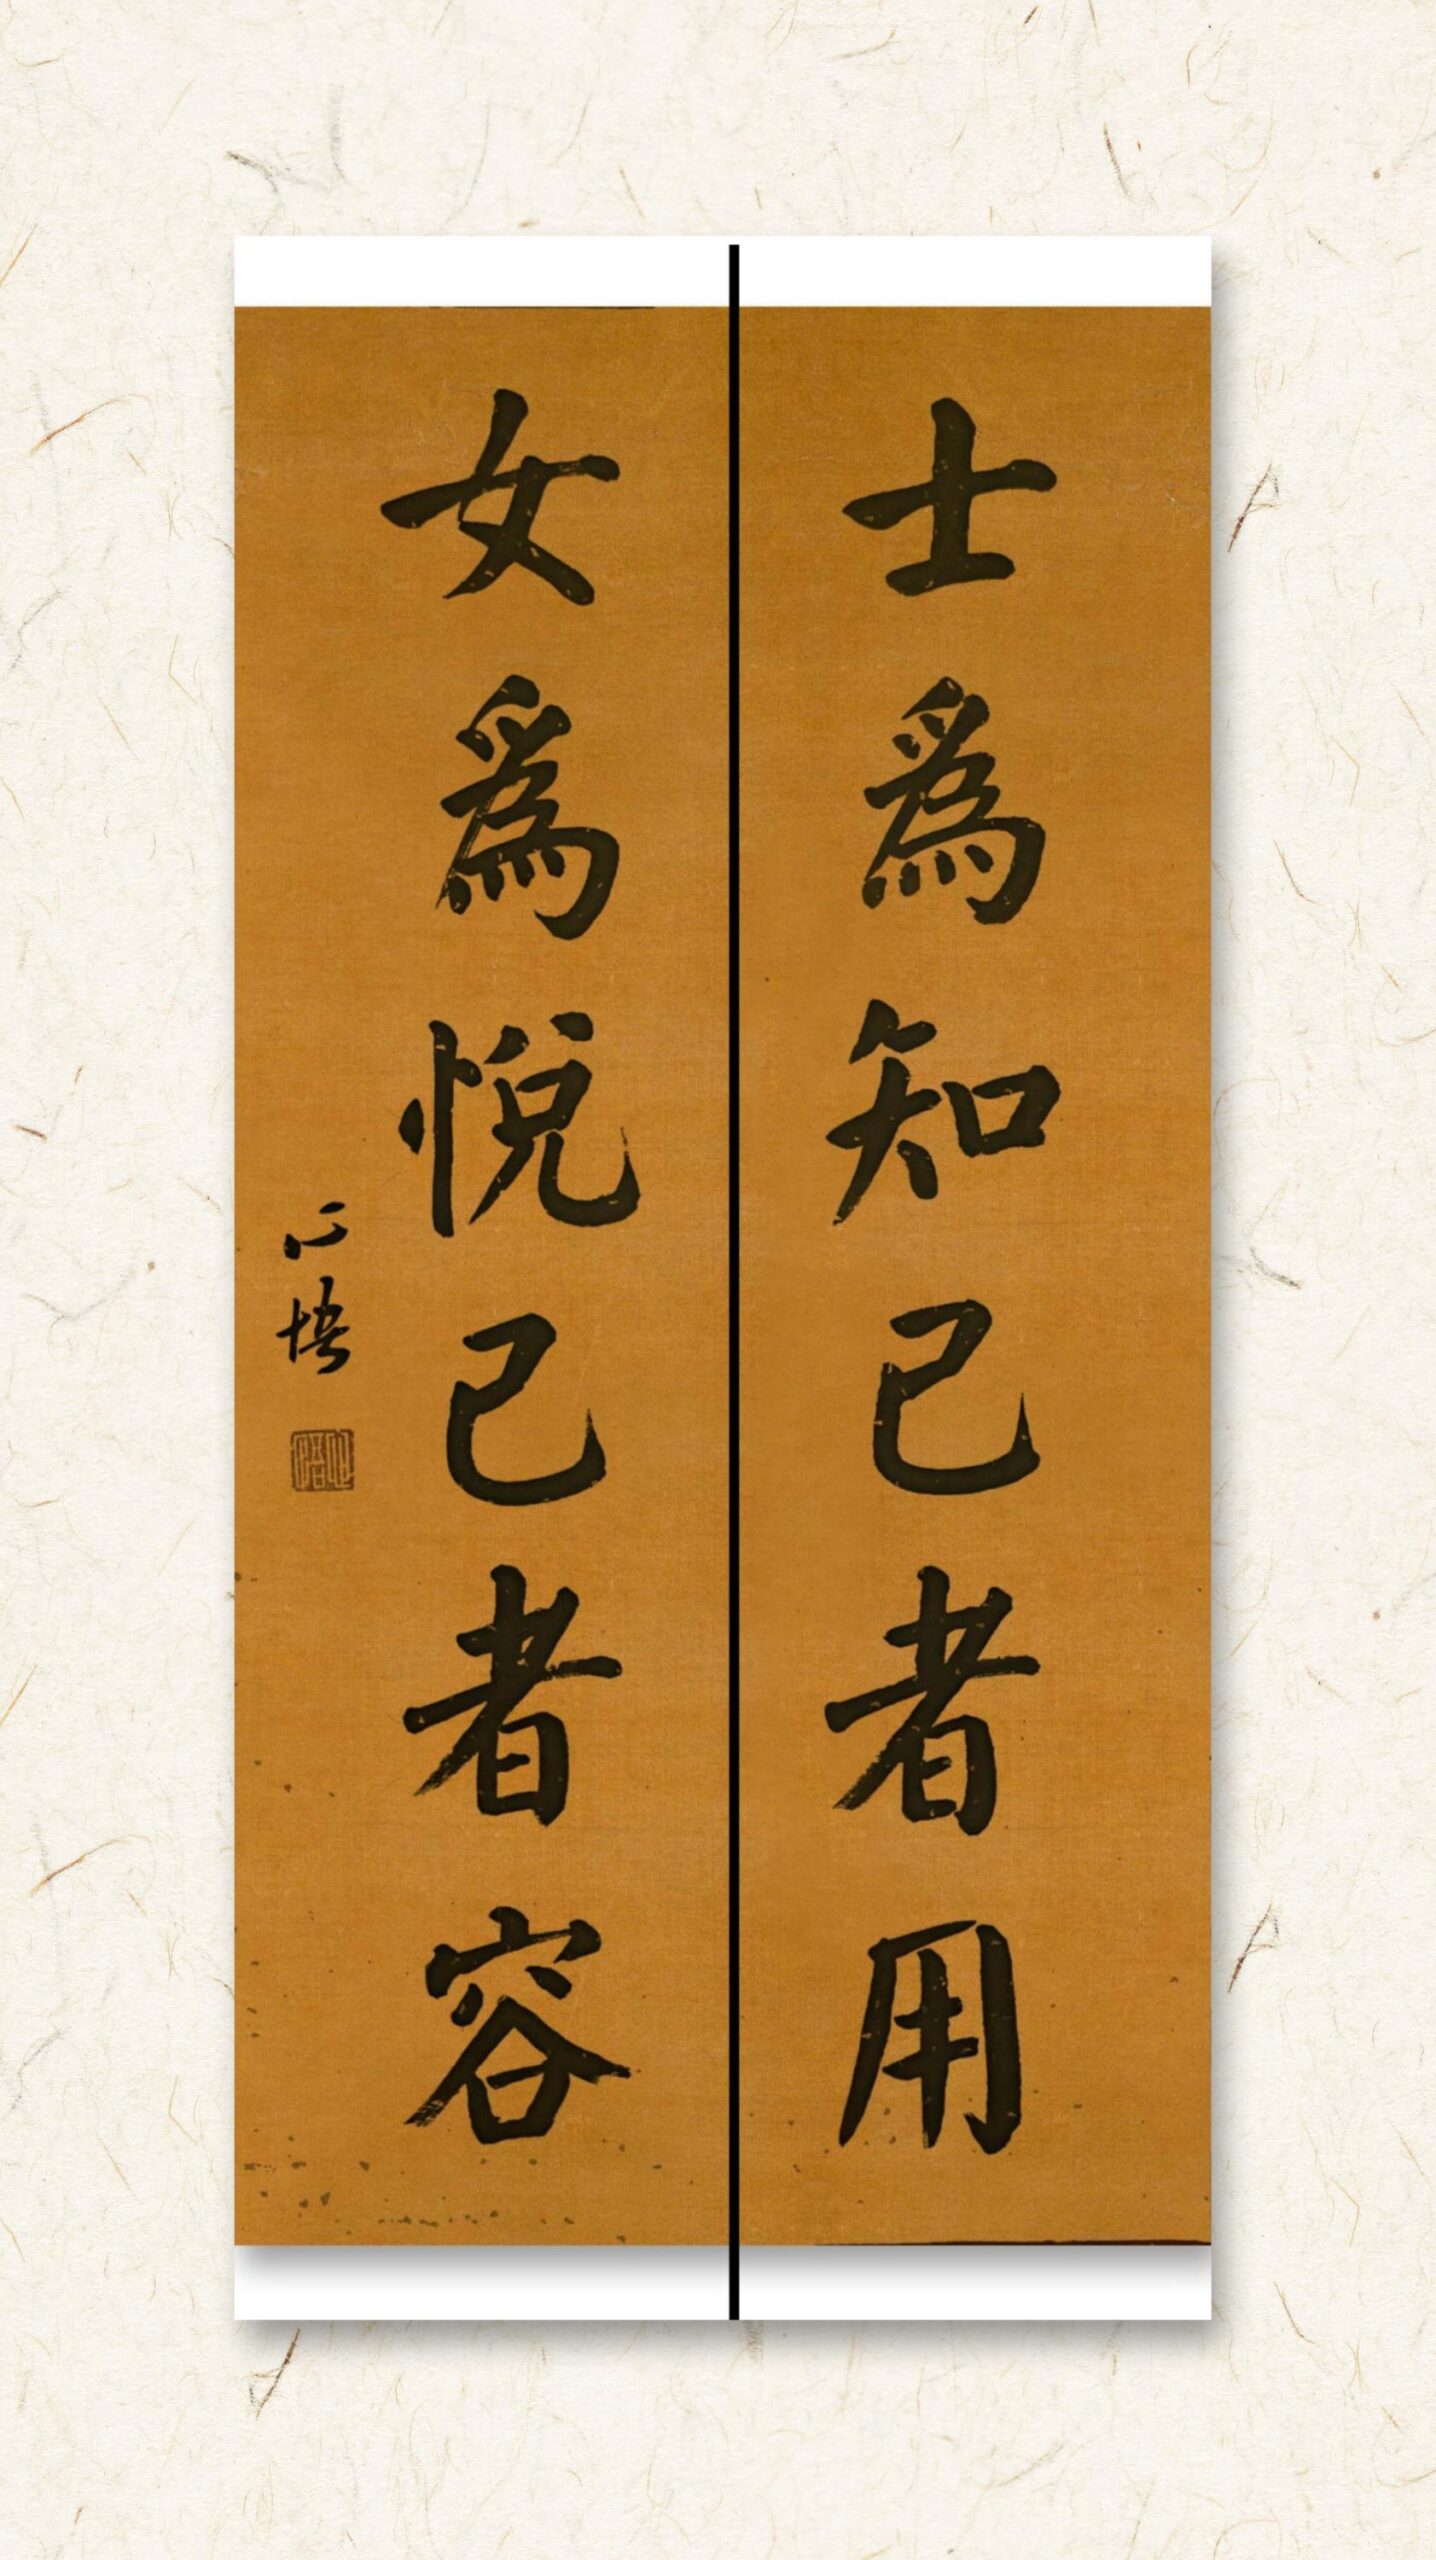 士爲知己者用
女爲悅己者容
心培